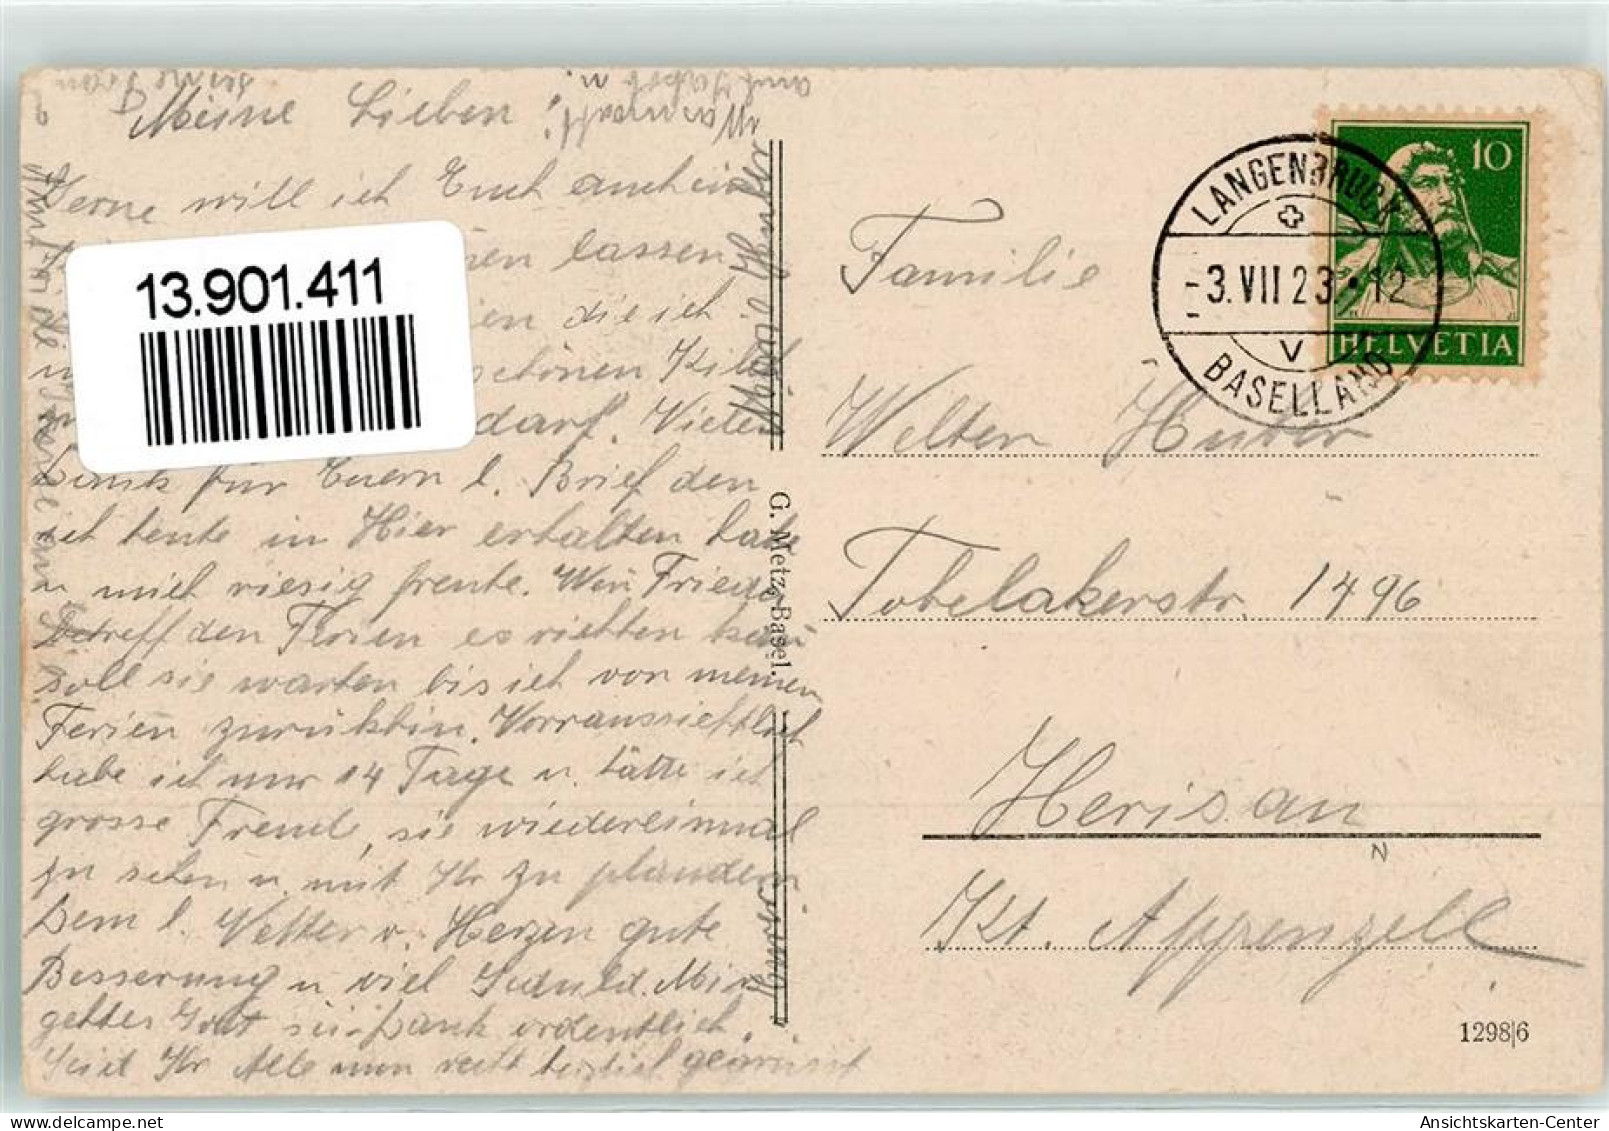 Meine Lieben!
Gerne will ich Euch auch ein
nen lassen
ien die ich
schönen
darf. Vielen
Dank für Euern l. Brief den
ich heute in Hier erhalten habe
u mich riesig freute. Wen Frieda
betreff den Ferien es richten kan
soll sie warten bis ich von meinen
Ferien zurük bin. Vorraussichtlich
habe ich nur 14 Tage u. hätte ich
grosse Freud, sie wiedereinmal
zu sehen u. mit Ihr zu plaudern
Dem l. Vetter v. Herzen gute
Besserung u viel Geduld. Mir
gehtes Gott sei-Dank ordentlich.
Seid Ihr Alle nun recht herzlich gegrüsst
13.901.411
G. Metz, Basel.
10
HELVETIA
LANGENBRUCK
-3.VII 23·12
V
BASELLAND
Familie
Welter Huber
Tobelakerstr. 1496
Herisau
Kt. Appenzell
1298|6
Ansichtskarten-Center